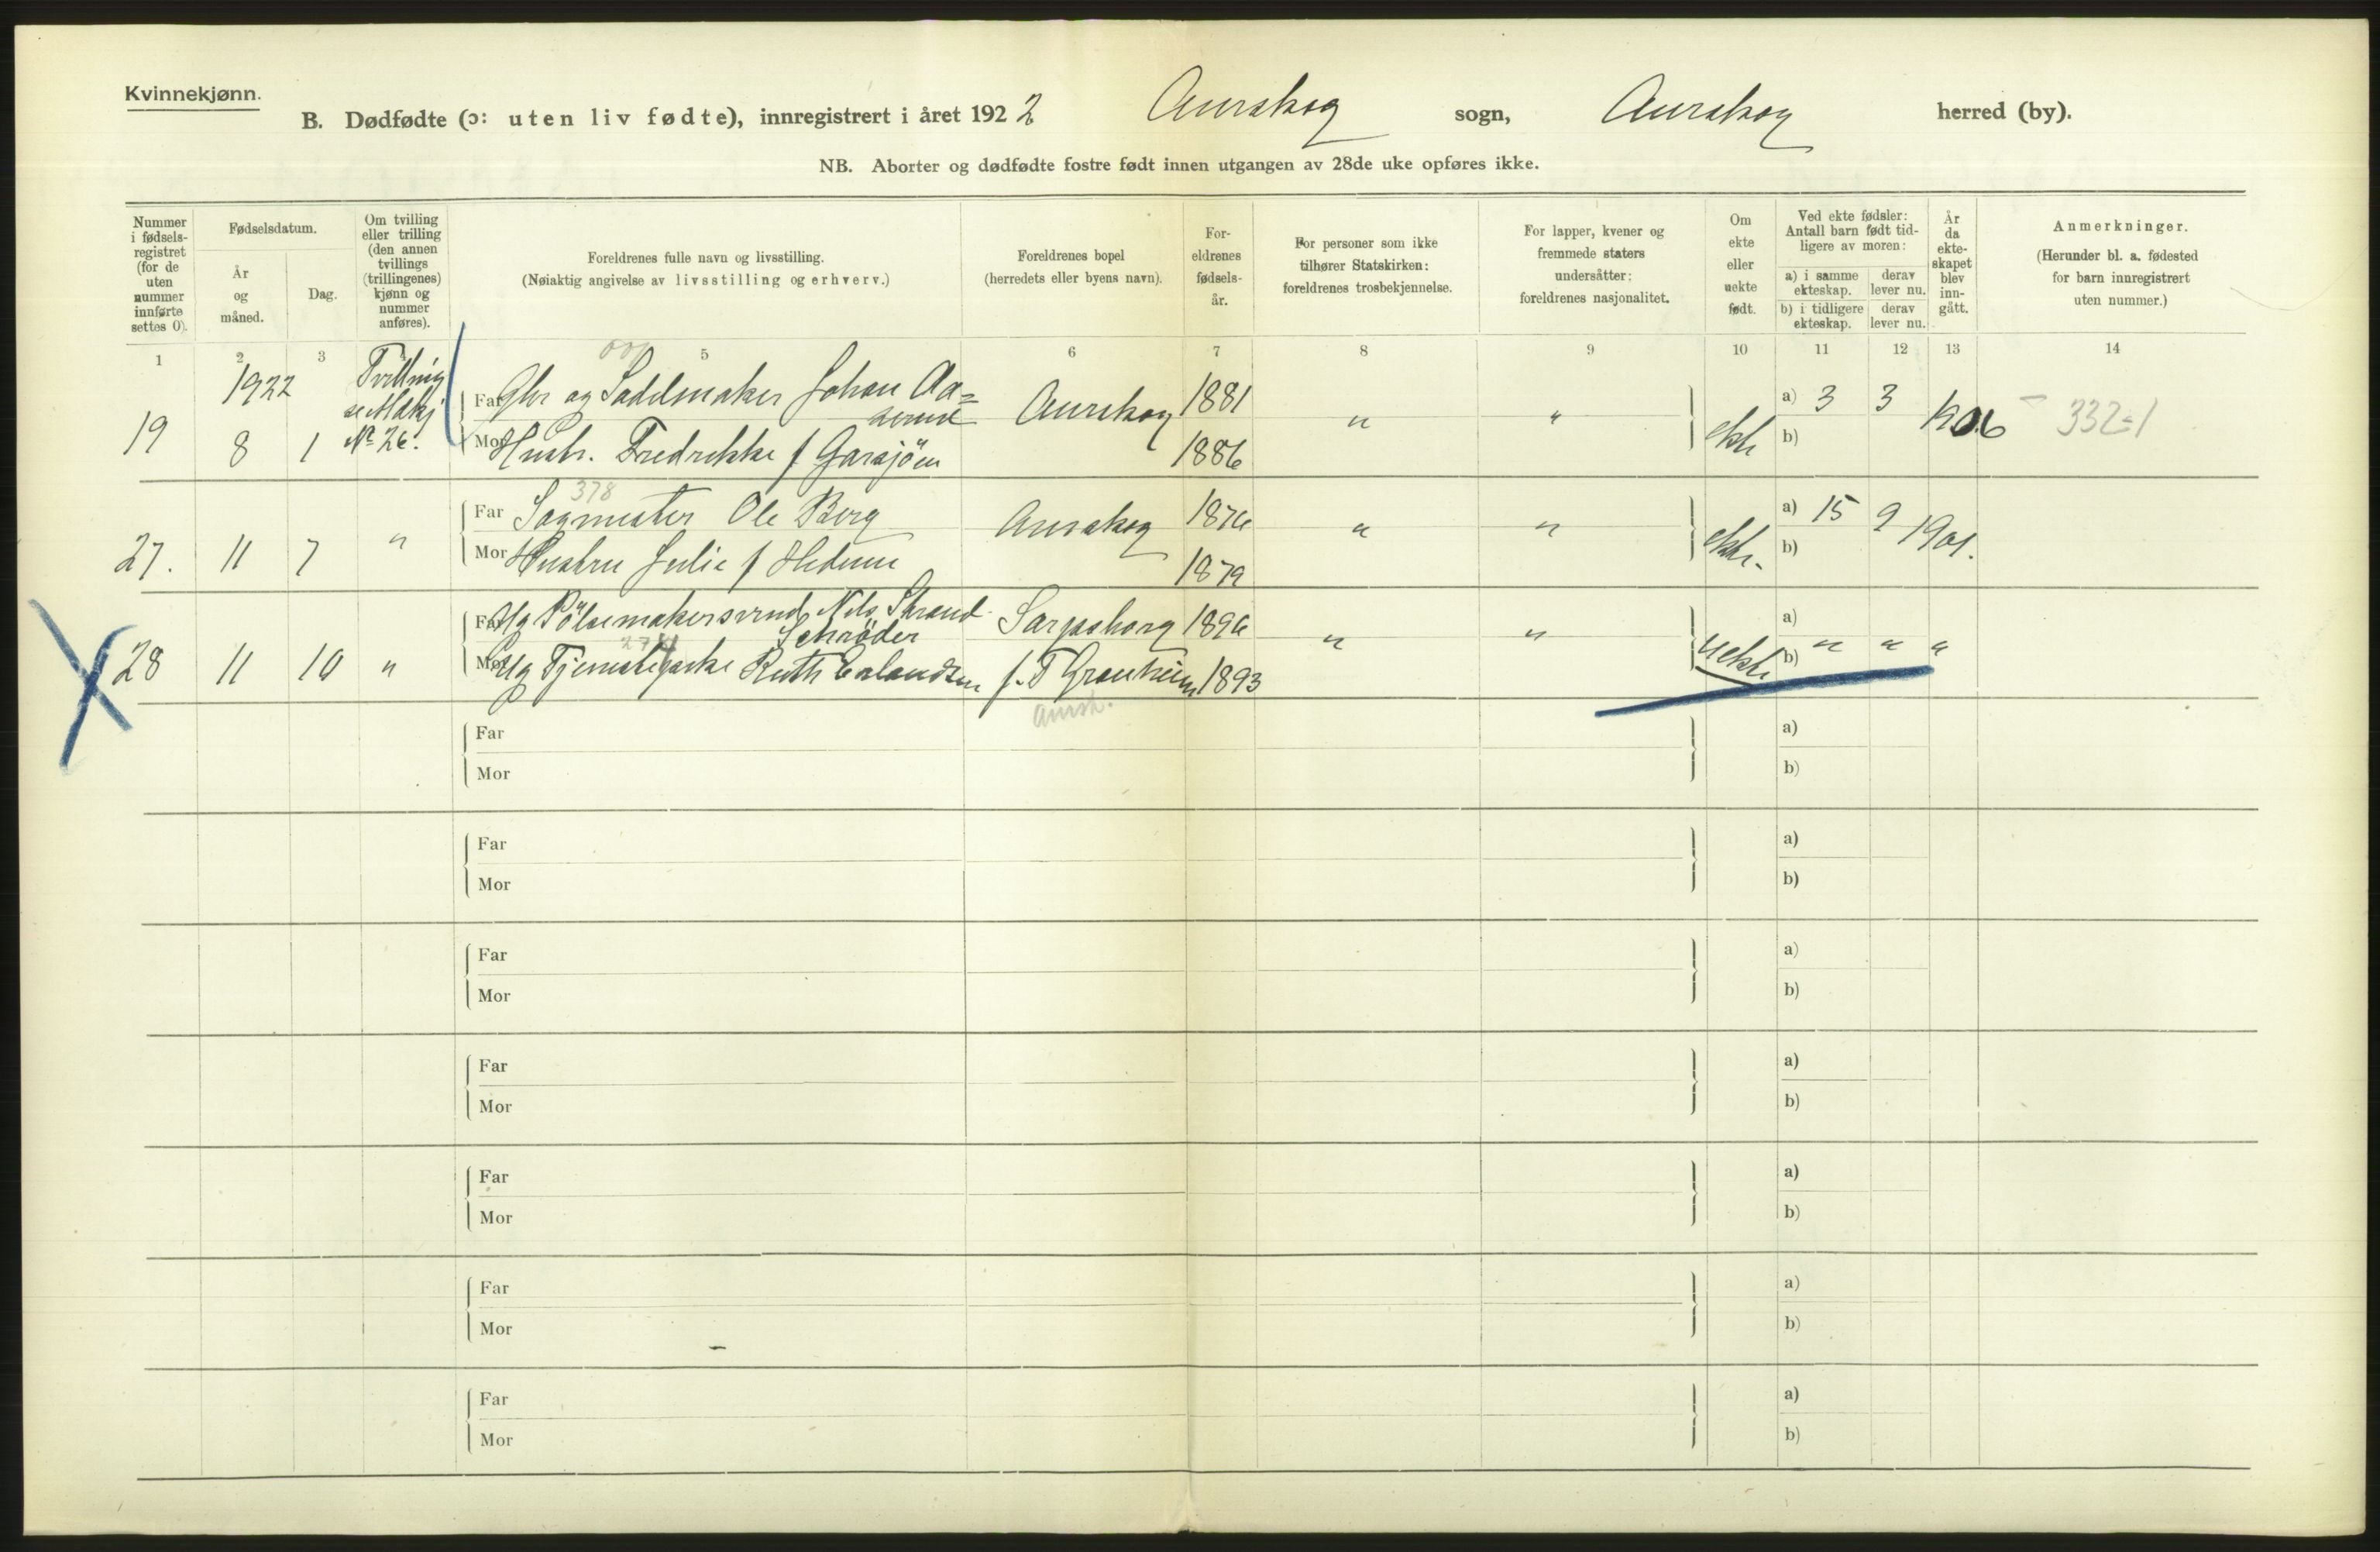 Kvinnekjønn.
B. Dødfødte (ɔ: uten liv fødte), innregistrert i året 1922 Aurskog sogn, Aurskog herred (by).
NB. Aborter og dødfødte fostre født innen utgangen av 28de uke opføres ikke.
Nummer i fødsels-registret (for de uten nummer innførte settes 0).
Fødselsdatum.
År og måned.
Dag.
Om tvilling eller trilling (den annen tvillings (trillingenes) kjønn og nummer anføres).
Foreldrenes fulle navn og livsstilling.
(Nøiaktig angivelse av livsstilling og erhverv.)
Foreldrenes bopel
(herredets eller byens navn).
For-eldrenes fødsels-år.
For personer som ikke tilhører Statskirken: foreldrenes trosbekjennelse.
For lapper, kvener og fremmede staters undersåtter: foreldrenes nasjonalitet.
Om ekte eller uekte født.
Ved ekte fødsler: Antall barn født tid-ligere av moren:
a) i samme ekteskap.
derav lever nu.
b) i tidligere ekteskap.
derav lever nu.
År da ekte-skapet blev inn-gått.
Anmerkninger.
(Herunder bl. a. fødested for barn innregistrert uten nummer.)
1 2 3 5 6 7 8 9 10 11 12 13 14
1922 Tvilling
19 8 1 No 26.
Far Gbr og Sadelmaker Johan Aa= Aurskog 1881 " " ekte a) 3 3 1906 332=1
Mor Hustr. Fredrikke f Garsjöen 1886 b)
378
27. 11 7 " Far Sagmester Ole Berg Aurskog 1876 " " ekte. a) 15 9 1901.
Mor Hustru Julie f Hedum 1879 b)
28 11 10 " Far Ug Pölsemakersvend Nils Strand Sarpsborg 1896 " " uekte a)
Schrøder
274
Mor Ug Tjenestepike Ruth Erlandsen f. T Granheim 1893 b) " " "
Aursk.
Far a)
Mor b)
Far a)
Mor b)
Far a)
Mor b)
Far a)
Mor b)
Far a)
Mor b)
Far a)
Mor b)
Far a)
Mor b)